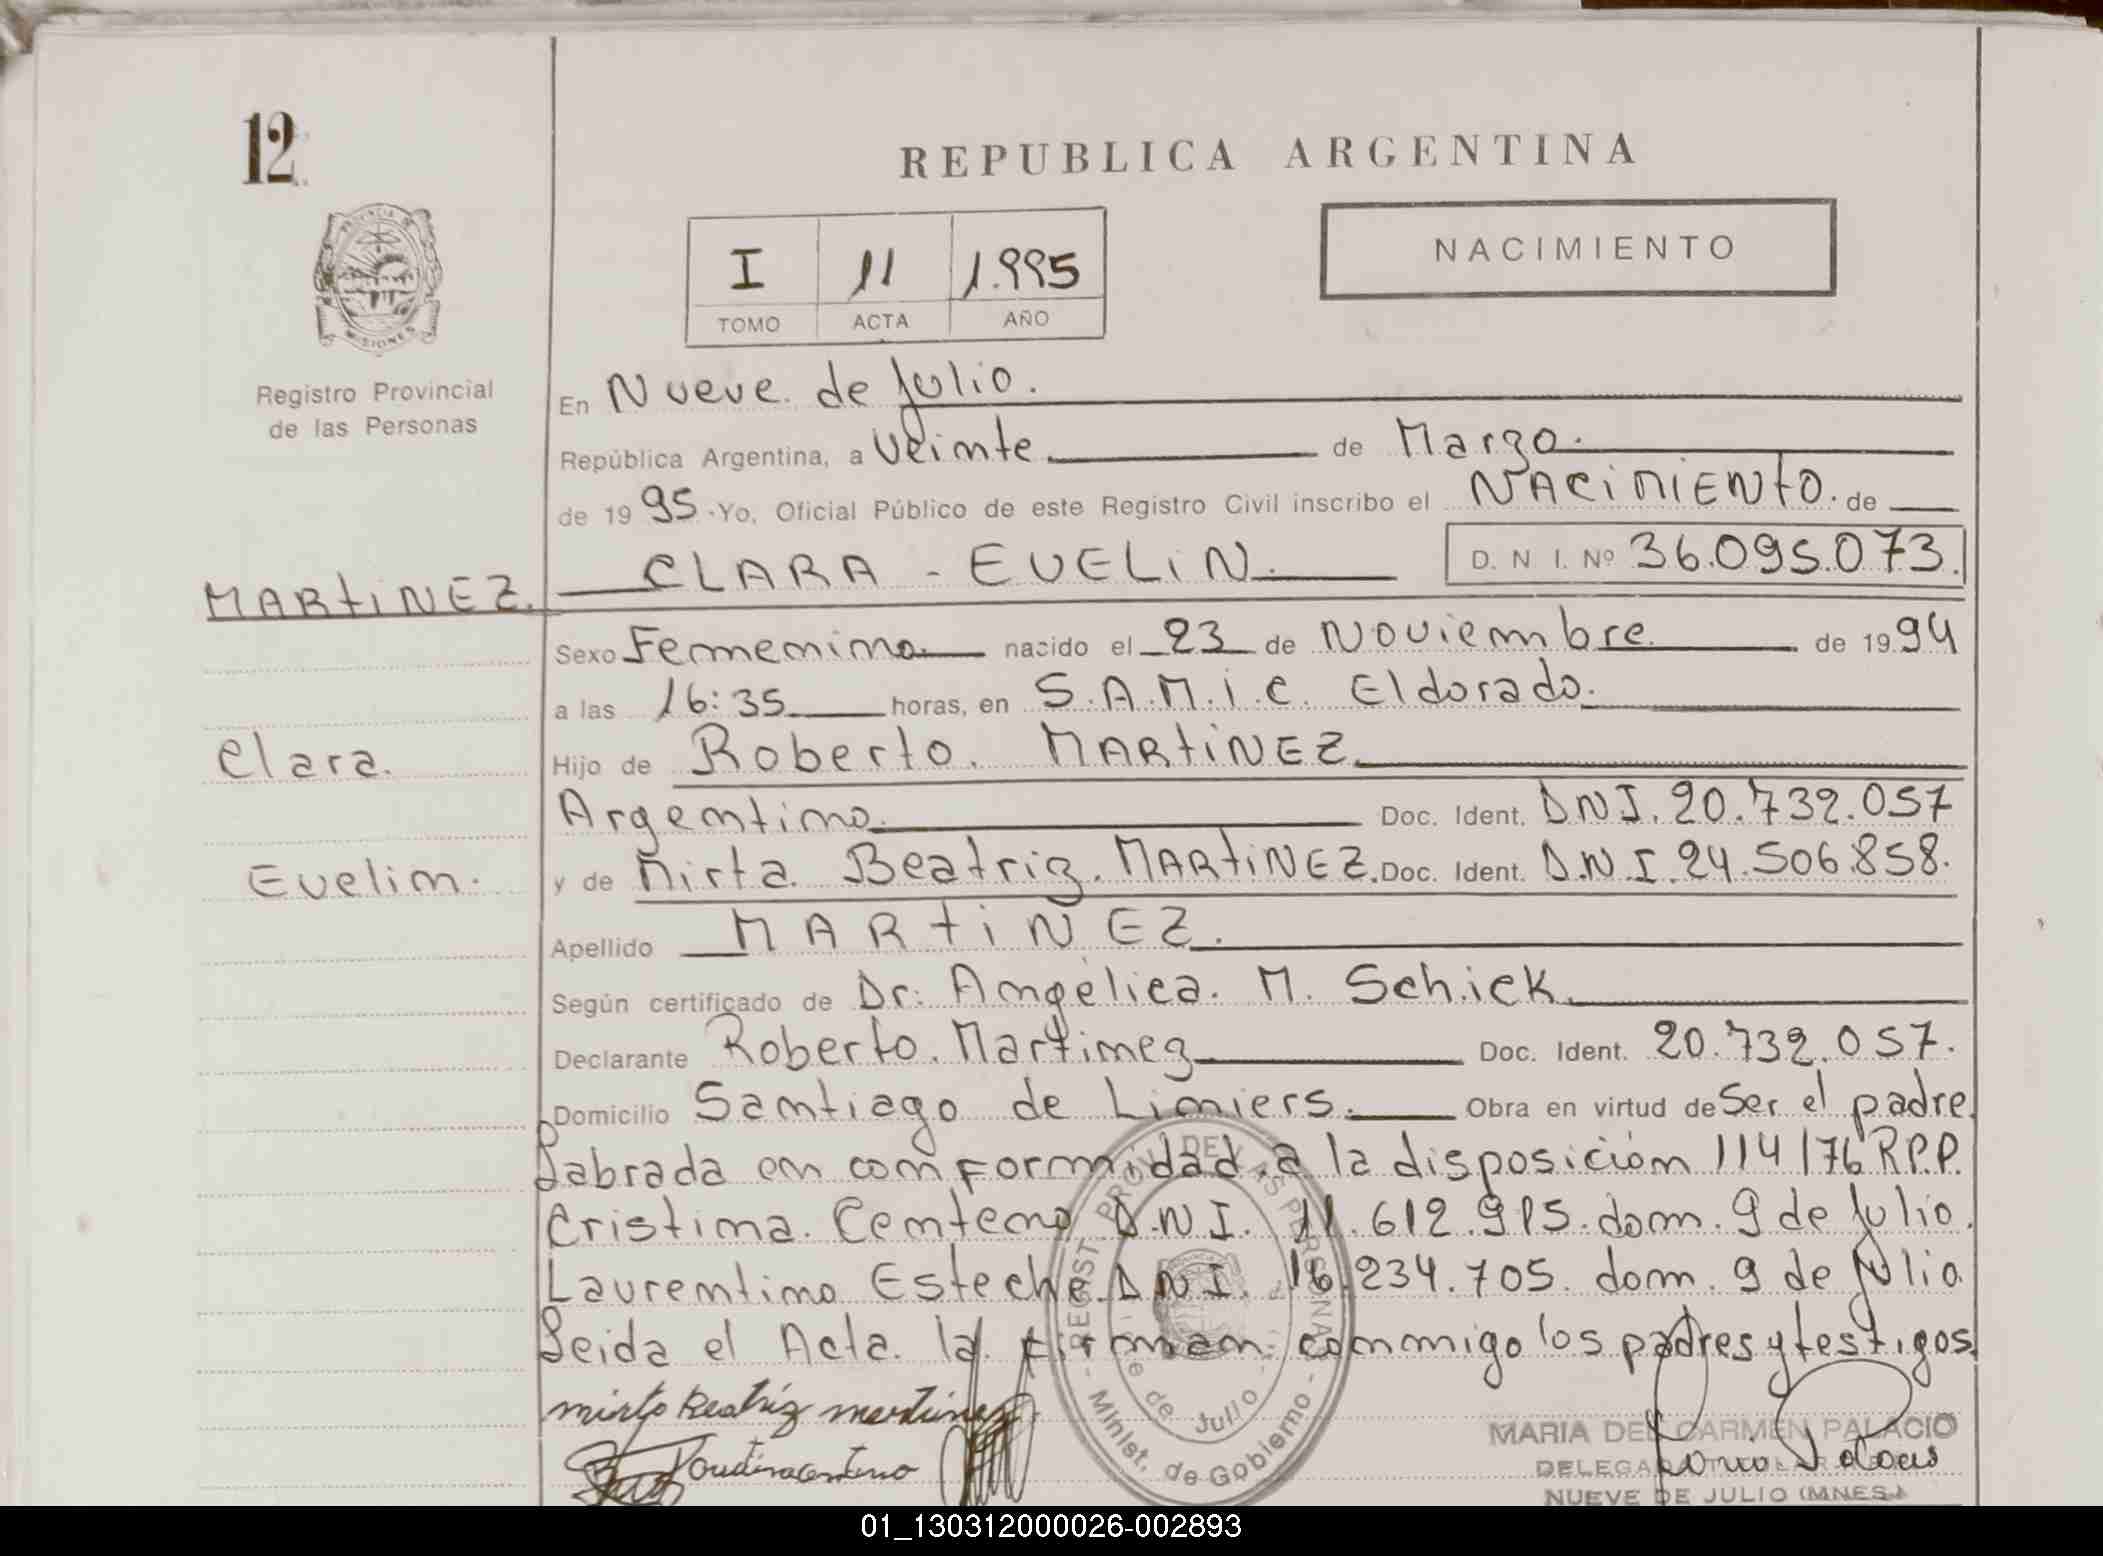 12
REPUBLICA ARGENTINA
PROVINCIA DE
MISIONES
I 11 1.995
TOMO ACTA AÑO
NACIMIENTO
Registro Provincial
de las Personas
En Nueve de Julio.
República Argentina, a Veinte de Marzo.
de 1995. Yo, Oficial Público de este Registro Civil inscribo el NACIMIENTO. de
MARTINEZ. CLARA - EVELIN. D. N I. Nº 36.095.073.
Sexo Femenino nacido el 23 de Noviembre de 1994
a las 16:35 horas, en S.A.M.i.C. Eldorado.
Clara. Hijo de Roberto. MARTINEZ.
Argentino. Doc. Ident. DNI. 20.732.057
Evelin. y de Mirta Beatriz. MARTINEZ. Doc. Ident. D.N.I. 24.506.858.
Apellido MARTINEZ.
Según certificado de Dr: Angélica. M. Schick.
Declarante Roberto. Martinez Doc. Ident. 20.732.057.
Domicilio Santiago de Liniers. Obra en virtud de Ser el padre.
Labrada en conformidad a la disposición 114/76 R.P.P.
Cristina Centeno D.N.I. 11.612.915. dom. 9 de Julio.
Laurentino Esteche D.N.I. 16.234.705. dom. 9 de Julio
Leida el Acta. la firman conmigo los padres y testigos.
REGIST. PROV. DE LAS PERSONAS
9 de Julio
Minist. de Gobierno
mirta Beatriz martinez
MARIA DEL CARMEN PALACIO
DELEGADA TITULAR
NUEVE DE JULIO (MNES.)
01_130312000026-002893